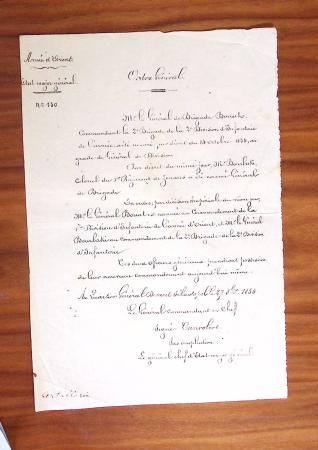 Armée d'Orient.
Etat-major général
N.º 140.
Ordre Général.
Mr. le Général de Brigade
Commandant la 2e Brigade de la 2e Division d'Infanterie
de l'armée, a été nommé par décret du 28 octobre 1854, au
grade de Général de Division
Par décret du même jour, Mr. Bourbaki,
Colonel du 1er Régiment de Zouaves a été nommé Général
de Brigade.
En outre, par décision Impériale du même jour,
Mr. le Général est nommé au Commandement de la
Division d'Infanterie de l'armée d'Orient, et Mr. le Général
Bourbaki au commandement de la 2e Brigade de la 2e Division
d'Infanterie.
Ces deux officiers généraux prendront possession
de leur nouveau commandement aujourd'hui même.
Au Quartier Général devant Sébastopol le 27 8bre 1854
Le Général Commandant en Chef
Signé Canrobert
Pour ampliation
Le général chef d'Etat major général